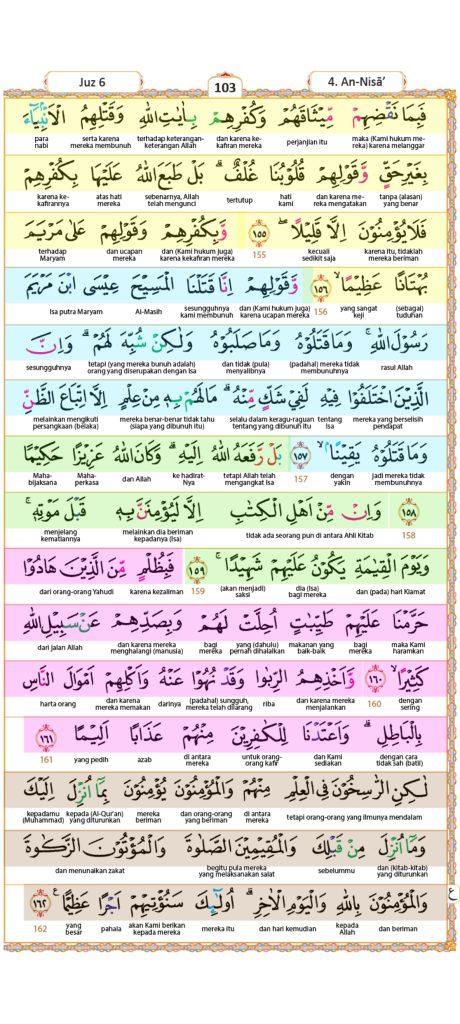 Juz 6
103
4. An-Nisā’
فَبِمَا نَقْضِهِمْ مِّيْثَاقَهُمْ وَكُفْرِهِمْ بِاٰيٰتِ اللّٰهِ وَقَتْلِهِمُ الْاَنْۢبِيَاۤءَ
maka (Kami hukum mereka) karena melanggar perjanjian itu dan karena kekafiran mereka terhadap keterangan-keterangan Allah serta karena mereka membunuh para nabi
بِغَيْرِ حَقٍّ وَّقَوْلِهِمْ قُلُوْبُنَا غُلْفٌ ۗ بَلْ طَبَعَ اللّٰهُ عَلَيْهَا بِكُفْرِهِمْ
tanpa (alasan) yang benar dan karena mereka mengatakan hati kami tertutup sebenarnya, Allah telah mengunci atas hati mereka karena kekafirannya
فَلَا يُؤْمِنُوْنَ اِلَّا قَلِيْلًا ۖ ١٥٥ وَّبِكُفْرِهِمْ وَقَوْلِهِمْ عَلٰى مَرْيَمَ
karena itu, tidaklah mereka beriman kecuali sedikit saja 155 dan (Kami hukum juga) karena kekafiran mereka dan ucapan mereka terhadap Maryam
بُهْتَانًا عَظِيْمًا ۙ ١٥٦ وَّقَوْلِهِمْ اِنَّا قَتَلْنَا الْمَسِيْحَ عِيْسَى ابْنَ مَرْيَمَ
(sebagai) tuduhan yang sangat keji 156 dan (Kami hukum juga) karena ucapan mereka sesungguhnya kami membunuh Al-Masih Isa putra Maryam
رَسُوْلَ اللّٰهِ ۚ وَمَا قَتَلُوْهُ وَمَا صَلَبُوْهُ وَلٰكِنْ شُبِّهَ لَهُمْ ۗ وَاِنَّ
rasul Allah (padahal) mereka tidak membunuhnya dan tidak (pula) menyalibnya tetapi (yang mereka bunuh adalah) orang yang diserupakan dengan Isa sesungguhnya
الَّذِيْنَ اخْتَلَفُوْا فِيْهِ لَفِيْ شَكٍّ مِّنْهُ ۗ مَا لَهُمْ بِهٖ مِنْ عِلْمٍ اِلَّا اتِّبَاعَ الظَّنِّ
mereka yang berselisih pendapat tentang Isa selalu dalam keragu-raguan tentang yang dibunuh itu mereka benar-benar tidak tahu (siapa yang dibunuh itu) melainkan mengikuti persangkaan (belaka)
وَمَا قَتَلُوْهُ يَقِيْنًا ۙ ١٥٧ بَلْ رَّفَعَهُ اللّٰهُ اِلَيْهِ ۗ وَكَانَ اللّٰهُ عَزِيْزًا حَكِيْمًا
jadi mereka tidak membunuhnya dengan yakin 157 tetapi Allah telah mengangkat Isa ke hadirat-Nya dan Allah Maha-perkasa Maha-bijaksana
١٥٨ وَاِنْ مِّنْ اَهْلِ الْكِتٰبِ اِلَّا لَيُؤْمِنَنَّ بِهٖ قَبْلَ مَوْتِهٖ ۚ
158 tidak ada seorang pun di antara Ahli Kitab melainkan dia beriman kepadanya (Isa) menjelang kematiannya
وَيَوْمَ الْقِيٰمَةِ يَكُوْنُ عَلَيْهِمْ شَهِيْدًا ۚ ١٥٩ فَبِظُلْمٍ مِّنَ الَّذِيْنَ هَادُوْا
dan (pada) hari Kiamat dia (Isa) bagi mereka (akan menjadi) saksi 159 karena kezaliman dari orang-orang Yahudi
حَرَّمْنَا عَلَيْهِمْ طَيِّبٰتٍ اُحِلَّتْ لَهُمْ وَبِصَدِّهِمْ عَنْ سَبِيْلِ اللّٰهِ
maka Kami haramkan bagi mereka makanan yang baik-baik yang (dahulu) pernah dihalalkan bagi mereka dan karena mereka menghalangi (manusia) dari jalan Allah
كَثِيْرًا ۙ ١٦٠ وَّاَخْذِهِمُ الرِّبٰوا وَقَدْ نُهُوْا عَنْهُ وَاَكْلِهِمْ اَمْوَالَ النَّاسِ
dengan sering 160 dan karena mereka menjalankan riba (padahal) sungguh, mereka telah dilarang darinya dan karena mereka memakan harta orang
بِالْبَاطِلِ ۗ وَاَعْتَدْنَا لِلْكٰفِرِيْنَ مِنْهُمْ عَذَابًا اَلِيْمًا ١٦١
dengan cara tidak sah (batil) dan Kami sediakan untuk orang-orang kafir di antara mereka azab yang pedih 161
لٰكِنِ الرَّاسِخُوْنَ فِى الْعِلْمِ مِنْهُمْ وَالْمُؤْمِنُوْنَ يُؤْمِنُوْنَ بِمَآ اُنْزِلَ اِلَيْكَ
tetapi orang-orang yang ilmunya mendalam di antara mereka dan orang-orang yang beriman mereka beriman kepada (Al-Qur'an) yang diturunkan kepadamu (Muhammad)
وَمَآ اُنْزِلَ مِنْ قَبْلِكَ وَالْمُقِيْمِيْنَ الصَّلٰوةَ وَالْمُؤْتُوْنَ الزَّكٰوةَ
dan (kitab-kitab) yang diturunkan sebelummu begitu pula mereka yang melaksanakan salat dan menunaikan zakat
وَالْمُؤْمِنُوْنَ بِاللّٰهِ وَالْيَوْمِ الْاٰخِرِ ۗ اُولٰۤىِٕكَ سَنُؤْتِيْهِمْ اَجْرًا عَظِيْمًا ࣖ ١٦٢
dan beriman kepada Allah dan hari kemudian mereka itu akan Kami berikan kepada mereka pahala yang besar 162
ع